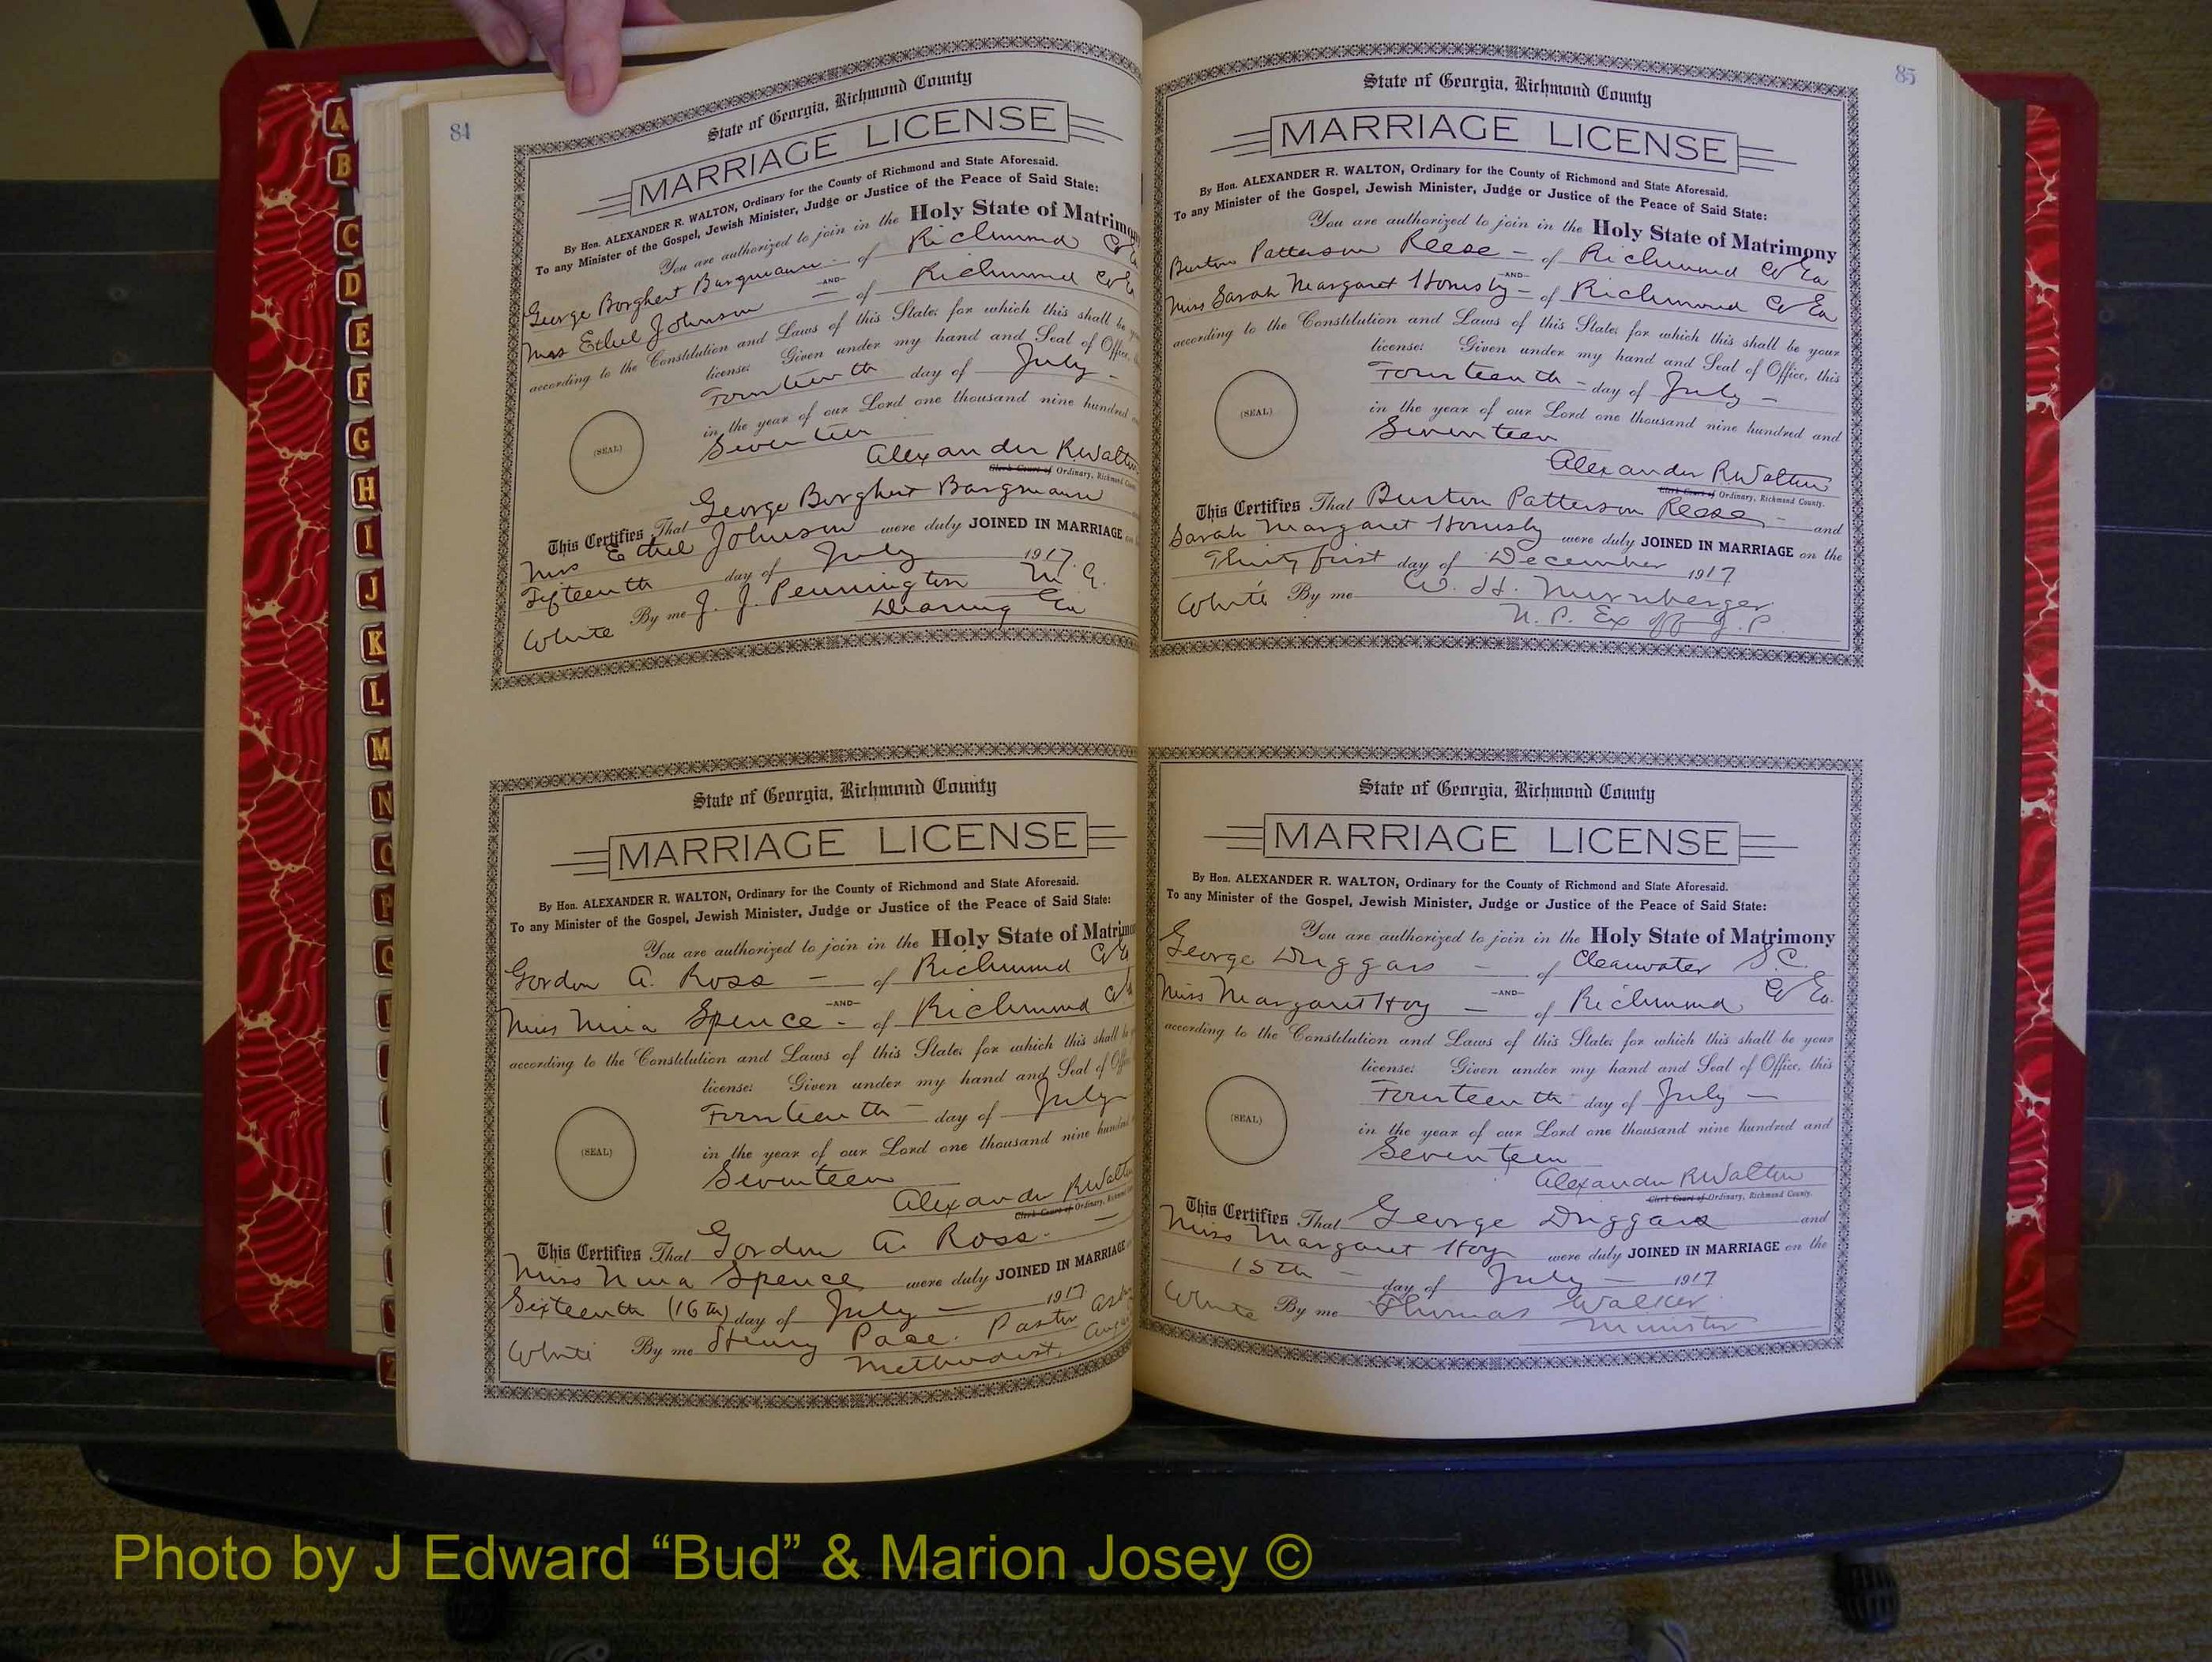 A
B
C
D
E
F
G
H
I
J
K
L
M
N
O
P
84
State of Georgia, Richmond County
MARRIAGE LICENSE
By Hon. ALEXANDER R. WALTON, Ordinary for the County of Richmond and State Aforesaid.
To any Minister of the Gospel, Jewish Minister, Judge or Justice of the Peace of Said State:
You are authorized to join in the Holy State of Matrimony
George Borghert Bargmann - of Richmond Co Ga
-AND-
Miss Ethel Johnson - of Richmond Co Ga
according to the Constitution and Laws of this State; for which this shall be
license: Given under my hand and Seal of Office,
Fourteenth day of July -
in the year of our Lord one thousand nine hundred
Seventeen
(SEAL)
Alexander R Walton
Clerk Court of Ordinary, Richmond
This Certifies That George Borghert Bargmann
Miss Ethel Johnson were duly JOINED IN MARRIAGE
Fifteenth day of July 1917.
White By me J. J. Pennington M. G.
Dearing Ga
State of Georgia, Richmond County
MARRIAGE LICENSE
By Hon. ALEXANDER R. WALTON, Ordinary for the County of Richmond and State Aforesaid.
To any Minister of the Gospel, Jewish Minister, Judge or Justice of the Peace of Said State:
You are authorized to join in the Holy State of
Gordon A. Ross - of Richmond
-AND-
Miss Nina Spence - of Richmond
according to the Constitution and Laws of this State; for which this shall be
license: Given under my hand and Seal of
Fourteenth - day of July
in the year of our Lord one thousand nine
Seventeen
(SEAL)
Alexander R Walton
Clerk Court of Ordinary,
This Certifies That Gordon A. Ross. -
Miss Nina Spence were duly JOINED IN MARRIAGE
Sixteenth (16th) day of July - 1917
White By me Henry Pace. Pastor
Methodist.
85
State of Georgia, Richmond County
MARRIAGE LICENSE
By Hon. ALEXANDER R. WALTON, Ordinary for the County of Richmond and State Aforesaid.
To any Minister of the Gospel, Jewish Minister, Judge or Justice of the Peace of Said State:
You are authorized to join in the Holy State of Matrimony
Burton Patterson Reese - of Richmond Co Ga
-AND-
Miss Sarah Margaret Hornsby - of Richmond Co Ga
according to the Constitution and Laws of this State; for which this shall be your
license: Given under my hand and Seal of Office, this
Fourteenth - day of July -
in the year of our Lord one thousand nine hundred and
Seventeen
(SEAL)
Alexander R Walton
Clerk Court of Ordinary, Richmond County.
This Certifies That Burton Patterson Reese, - and
Sarah Margaret Hornsby were duly JOINED IN MARRIAGE on the
Thirty first day of December 1917
White By me W. H. Nurnberger
N. P. Ex off J. P.
State of Georgia, Richmond County
MARRIAGE LICENSE
By Hon. ALEXANDER R. WALTON, Ordinary for the County of Richmond and State Aforesaid.
To any Minister of the Gospel, Jewish Minister, Judge or Justice of the Peace of Said State:
You are authorized to join in the Holy State of Matrimony
George Driggars - of Clearwater S.C.
-AND-
Miss Margaret Hoy - of Richmond Co Ga.
according to the Constitution and Laws of this State; for which this shall be your
license: Given under my hand and Seal of Office, this
Fourteenth - day of July -
in the year of our Lord one thousand nine hundred and
Seventeen
(SEAL)
Alexander R Walton
Clerk Court of Ordinary, Richmond County.
This Certifies That George Driggars and
Miss Margaret Hoy were duly JOINED IN MARRIAGE on the
15th - day of July - 1917
White By me Thomas Walker
Minister
Photo by J Edward “Bud” & Marion Josey ©